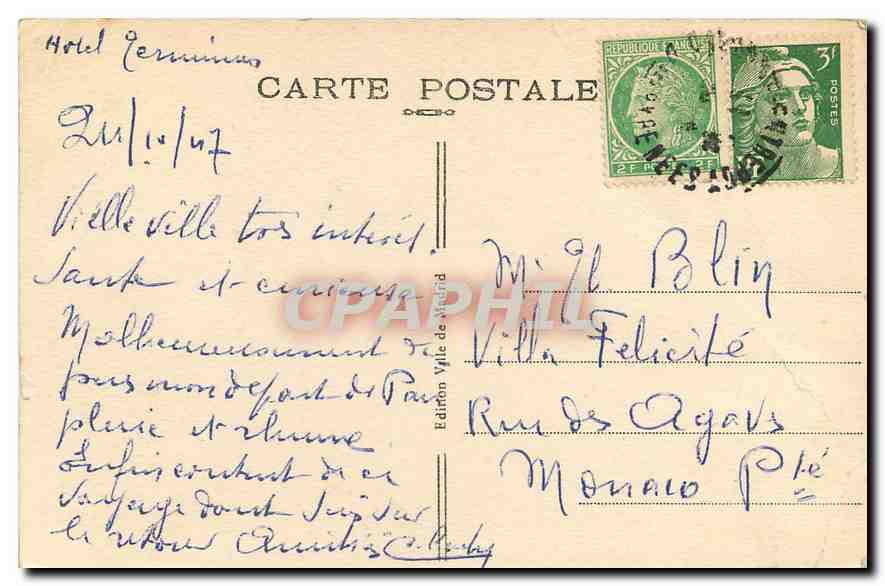 Hotel Terminus
CARTE POSTALE
REPUBLIQUE FRANÇAISE
2F
2F
3F
POSTES
/10/47
Vielle ville tres interes
sante et curieuse
Malheureusement de
puis mon depart de Paris
pluie et rhume
Enfin content de ce
voyage dont suis sur
le retour Amitiés
Edition Ville de Madrid
CPAPHIL
Mr Blin
Villa Felicité
Rue des Agaves
Monaco Pté